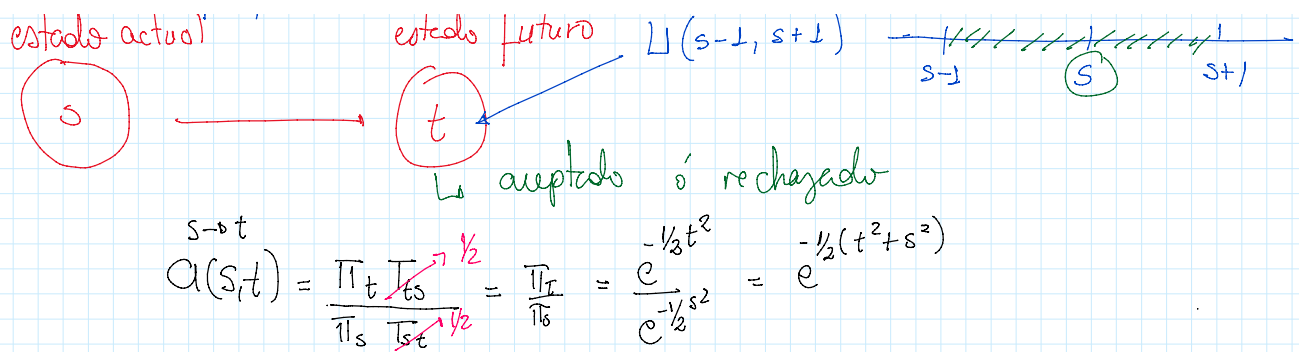 estado actual estado futuro U(s-1, s+1)
s-1 s s+1
s t
↳ aceptado ó rechazado
s→t
a(s,t) = π_t T_ts / π_s T_st = π_t / π_s = e^{-1/2 t²} / e^{-1/2 s²} = e^{-1/2(t²+s²)}
1/2
1/2